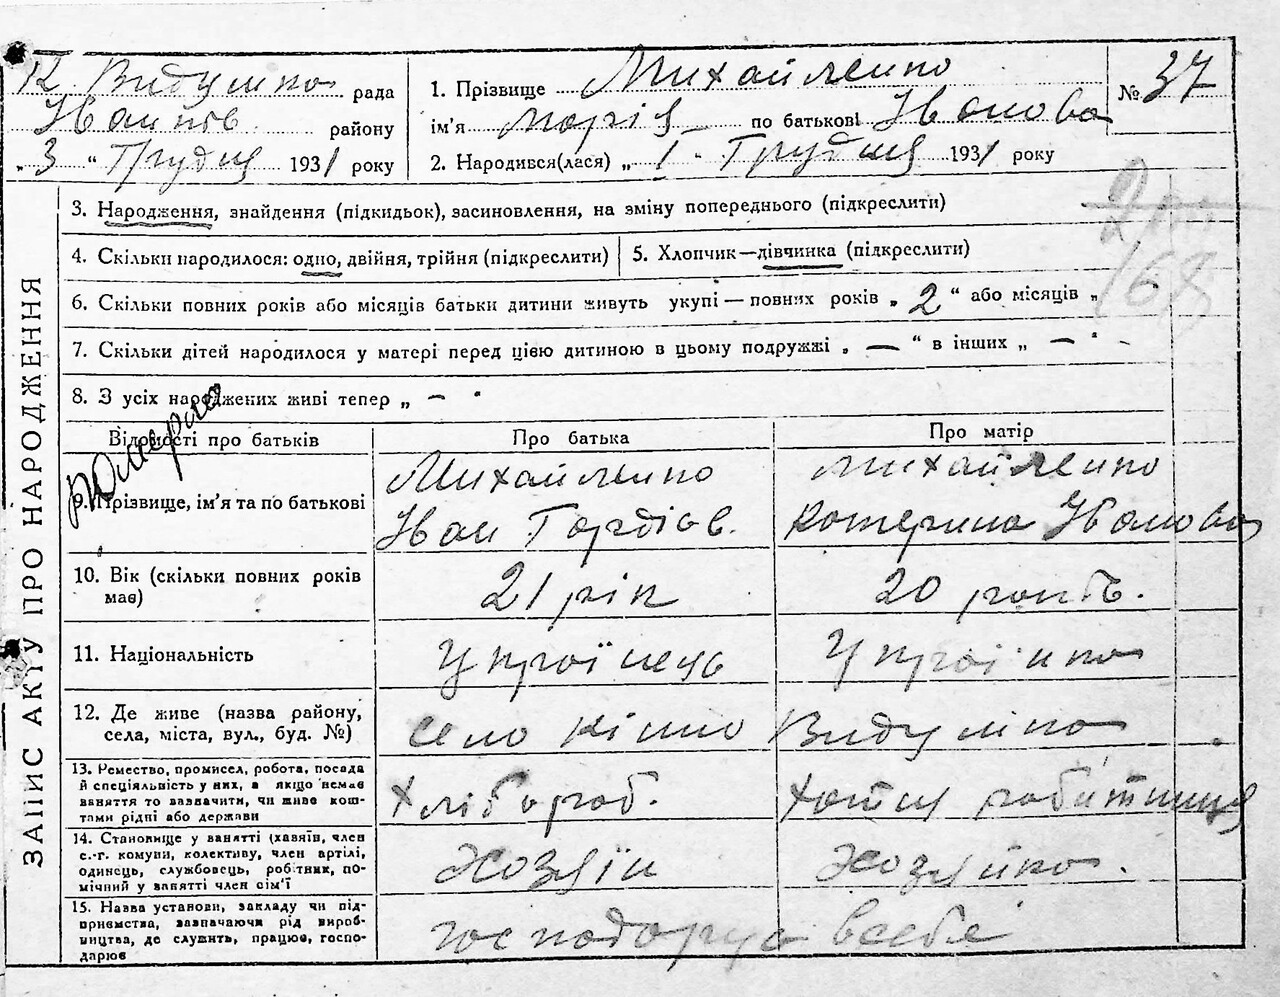 рада
району
„ 3 “ Грудня 1931 року
1. Прізвище Михайленко
ім'я Марія по батькові Іванова
2. Народився(лася) „ 1 “ Грудня 1931 року
№ 37
ЗАПИС АКТУ ПРО НАРОДЖЕННЯ
3. Народження, знайдення (підкидьок), засиновлення, на зміну попереднього (підкреслити)
4. Скільки народилося: одно, двійня, трійня (підкреслити)
5. Хлопчик—дівчинка (підкреслити)
6. Скільки повних років або місяців батьки дитини живуть укупі — повних років „ 2 “ або місяців „
7. Скільки дітей народилося у матері перед цією дитиною в цьому подружжі „ — “ в інших „ — “
8. З усіх народжених живі тепер „ — “
Відомості про батьків
Про батька
Про матір
9. Прізвище, ім'я та по батькові
Михайленко
Іван Гордіїв.
Михайленко
Катерина Іванова
10. Вік (скільки повних років
має)
21 рік
20 років.
11. Національність
Українець
Українка
12. Де живе (назва району,
села, міста, вул., буд. №)
село
13. Ремество, промисел, робота, посада
й спеціяльність у них, а якщо немає
заняття то зазначити, чи живе кош-
тами рідні або держави
Хлібороб.
Хатня робітниця
14. Становище у занятті (хазяїн, член
с.-г. комуни, колективу, член артілі,
одинець, службовець, робітник, по-
мічний у занятті член сім'ї
Хозяїн
Хозяйка.
15. Назва установи, закладу чи під-
приємства, зазначаючи рід вироб-
ництва, де служить, працює, госпо-
дарює
господарує всебе